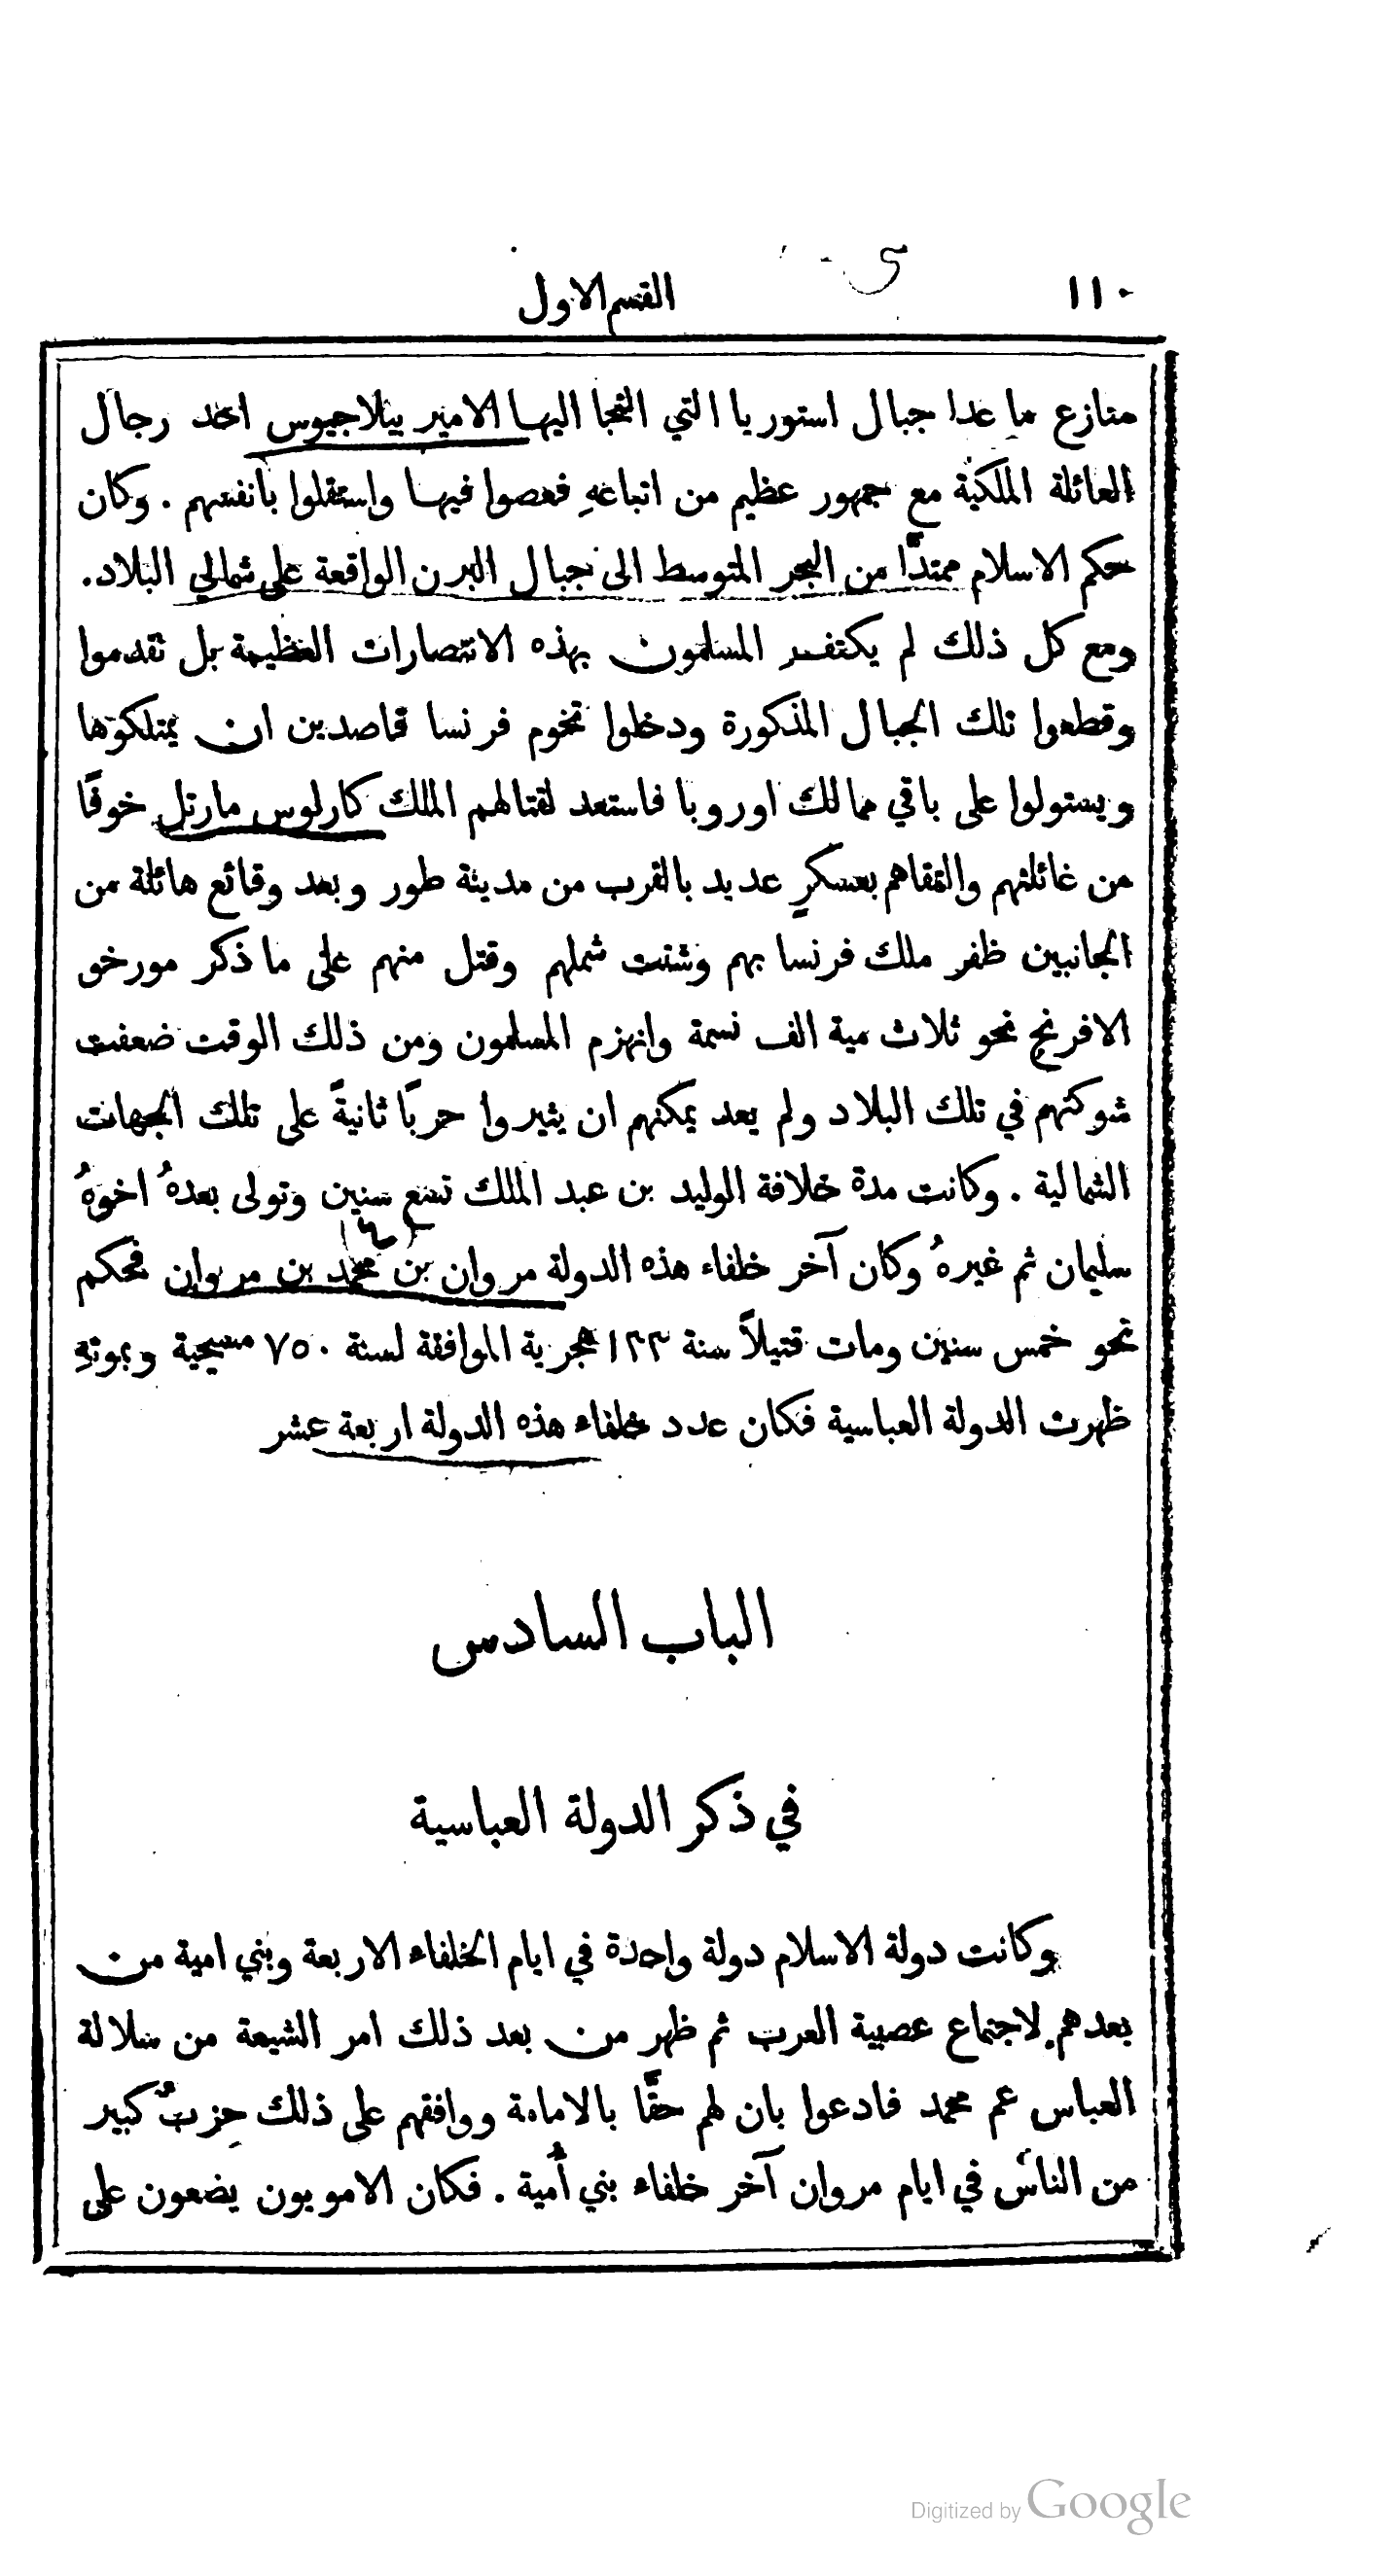 ١١٠ القسم الاول
منازع ما عدا جبال استوريا التي التجا اليها الامير بيلاجيوس احد رجال
العائلة الملكية مع جمهور عظيم من اتباعهِ فعصوا فيها واستقلوا بانفسهم . وكان
حكم الاسلام ممتدًّا من البحر المتوسط الى جبال البرن الواقعة على شمالي البلاد.
ومع كل ذلك لم يكتفِ المسلمون بهذه الانتصارات العظيمة بل تقدموا
وقطعوا تلك الجبال المذكورة ودخلوا تخوم فرنسا قاصدين ان يمتلكوها
ويستولوا على باقي ممالك اوروبا فاستعد لقتالهم الملك كارلوس مارتل خوفًا
من غائلتهم والتقاهم بعسكرٍ عديد بالقرب من مدينة طور وبعد وقائع هائلة من
الجانبين ظفر ملك فرنسا بهم وشتت شملهم وقتل منهم على ما ذكر مورخو
الافرنج نحو ثلاث مية الف نسمة وانهزم المسلمون ومن ذلك الوقت ضعفت
شوكتهم في تلك البلاد ولم يعد يمكنهم ان يثيروا حربًا ثانيةً على تلك الجهات
الشمالية . وكانت مدة خلافة الوليد بن عبد الملك تسع سنين وتولى بعدهُ اخوهُ
سليمان ثم غيرهُ وكان آخر خلفاء هذه الدولة مروان بن محمد بن مروان فحكم
نحو خمس سنين ومات قتيلاً سنة ١٣٣ هجرية الموافقة لسنة ٧٥٠ مسيحية وبموتهِ
ظهرت الدولة العباسية فكان عدد خلفاء هذه الدولة اربعة عشر
الباب السادس
في ذكر الدولة العباسية
وكانت دولة الاسلام دولة واحدة في ايام الخلفاء الاربعة وبني امية من
بعدهم لاجتماع عصبية العرب ثم ظهر من بعد ذلك امر الشيعة من سلالة
العباس عم محمد فادعوا بان لهم حقًّا بالامامة ووافقهم على ذلك حِزبٌ كبير
من الناس في ايام مروان آخر خلفاء بني أُمية . فكان الامويون يضعون على
Digitized by Google